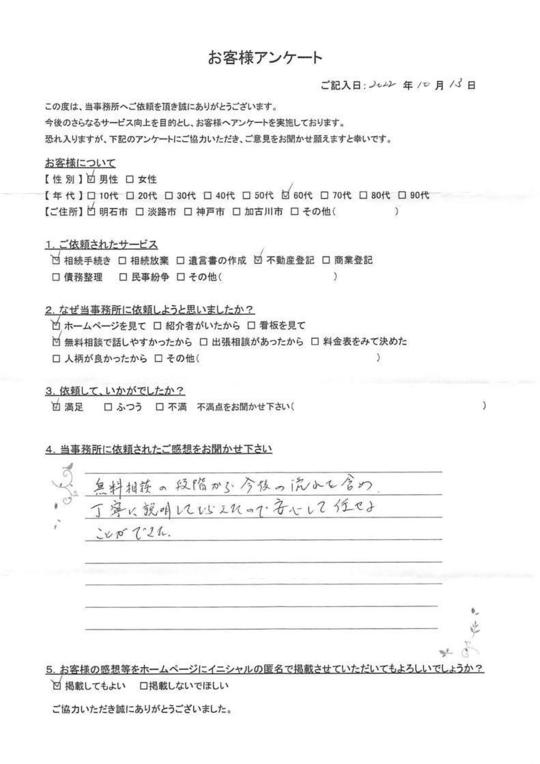 お客様アンケート
ご記入日：2022 年 10 月 13 日
この度は、当事務所へご依頼を頂き誠にありがとうございます。
今後のさらなるサービス向上を目的とし、お客様へアンケートを実施しております。
恐れ入りますが、下記のアンケートにご協力いただき、ご意見をお聞かせ願えますと幸いです。
お客様について
【 性 別 】☑ 男性 □ 女性
【 年 代 】□ 10代 □ 20代 □ 30代 □ 40代 □ 50代 ☑ 60代 □ 70代 □ 80代 □ 90代
【ご住所】☑ 明石市 □ 淡路市 □ 神戸市 □ 加古川市 □ その他( )
1. ご依頼されたサービス
☑ 相続手続き □ 相続放棄 □ 遺言書の作成 ☑ 不動産登記 □ 商業登記
□ 債務整理 □ 民事紛争 □ その他( )
2. なぜ当事務所に依頼しようと思いましたか？
☑ ホームページを見て □ 紹介者がいたから □ 看板を見て
☑ 無料相談で話しやすかったから □ 出張相談があったから □ 料金表をみて決めた
□ 人柄が良かったから □ その他( )
3. 依頼して、いかがでしたか？
☑ 満足 □ ふつう □ 不満 不満点をお聞かせ下さい( )
4. 当事務所に依頼されたご感想をお聞かせ下さい
無料相談の段階から今後の流れを含め、
丁寧に説明してもらえたので安心して任せる
ことができた。
5. お客様の感想等をホームページにイニシャルの匿名で掲載させていただいてもよろしいでしょうか？
☑ 掲載してもよい □掲載しないでほしい
ご協力いただき誠にありがとうございました。